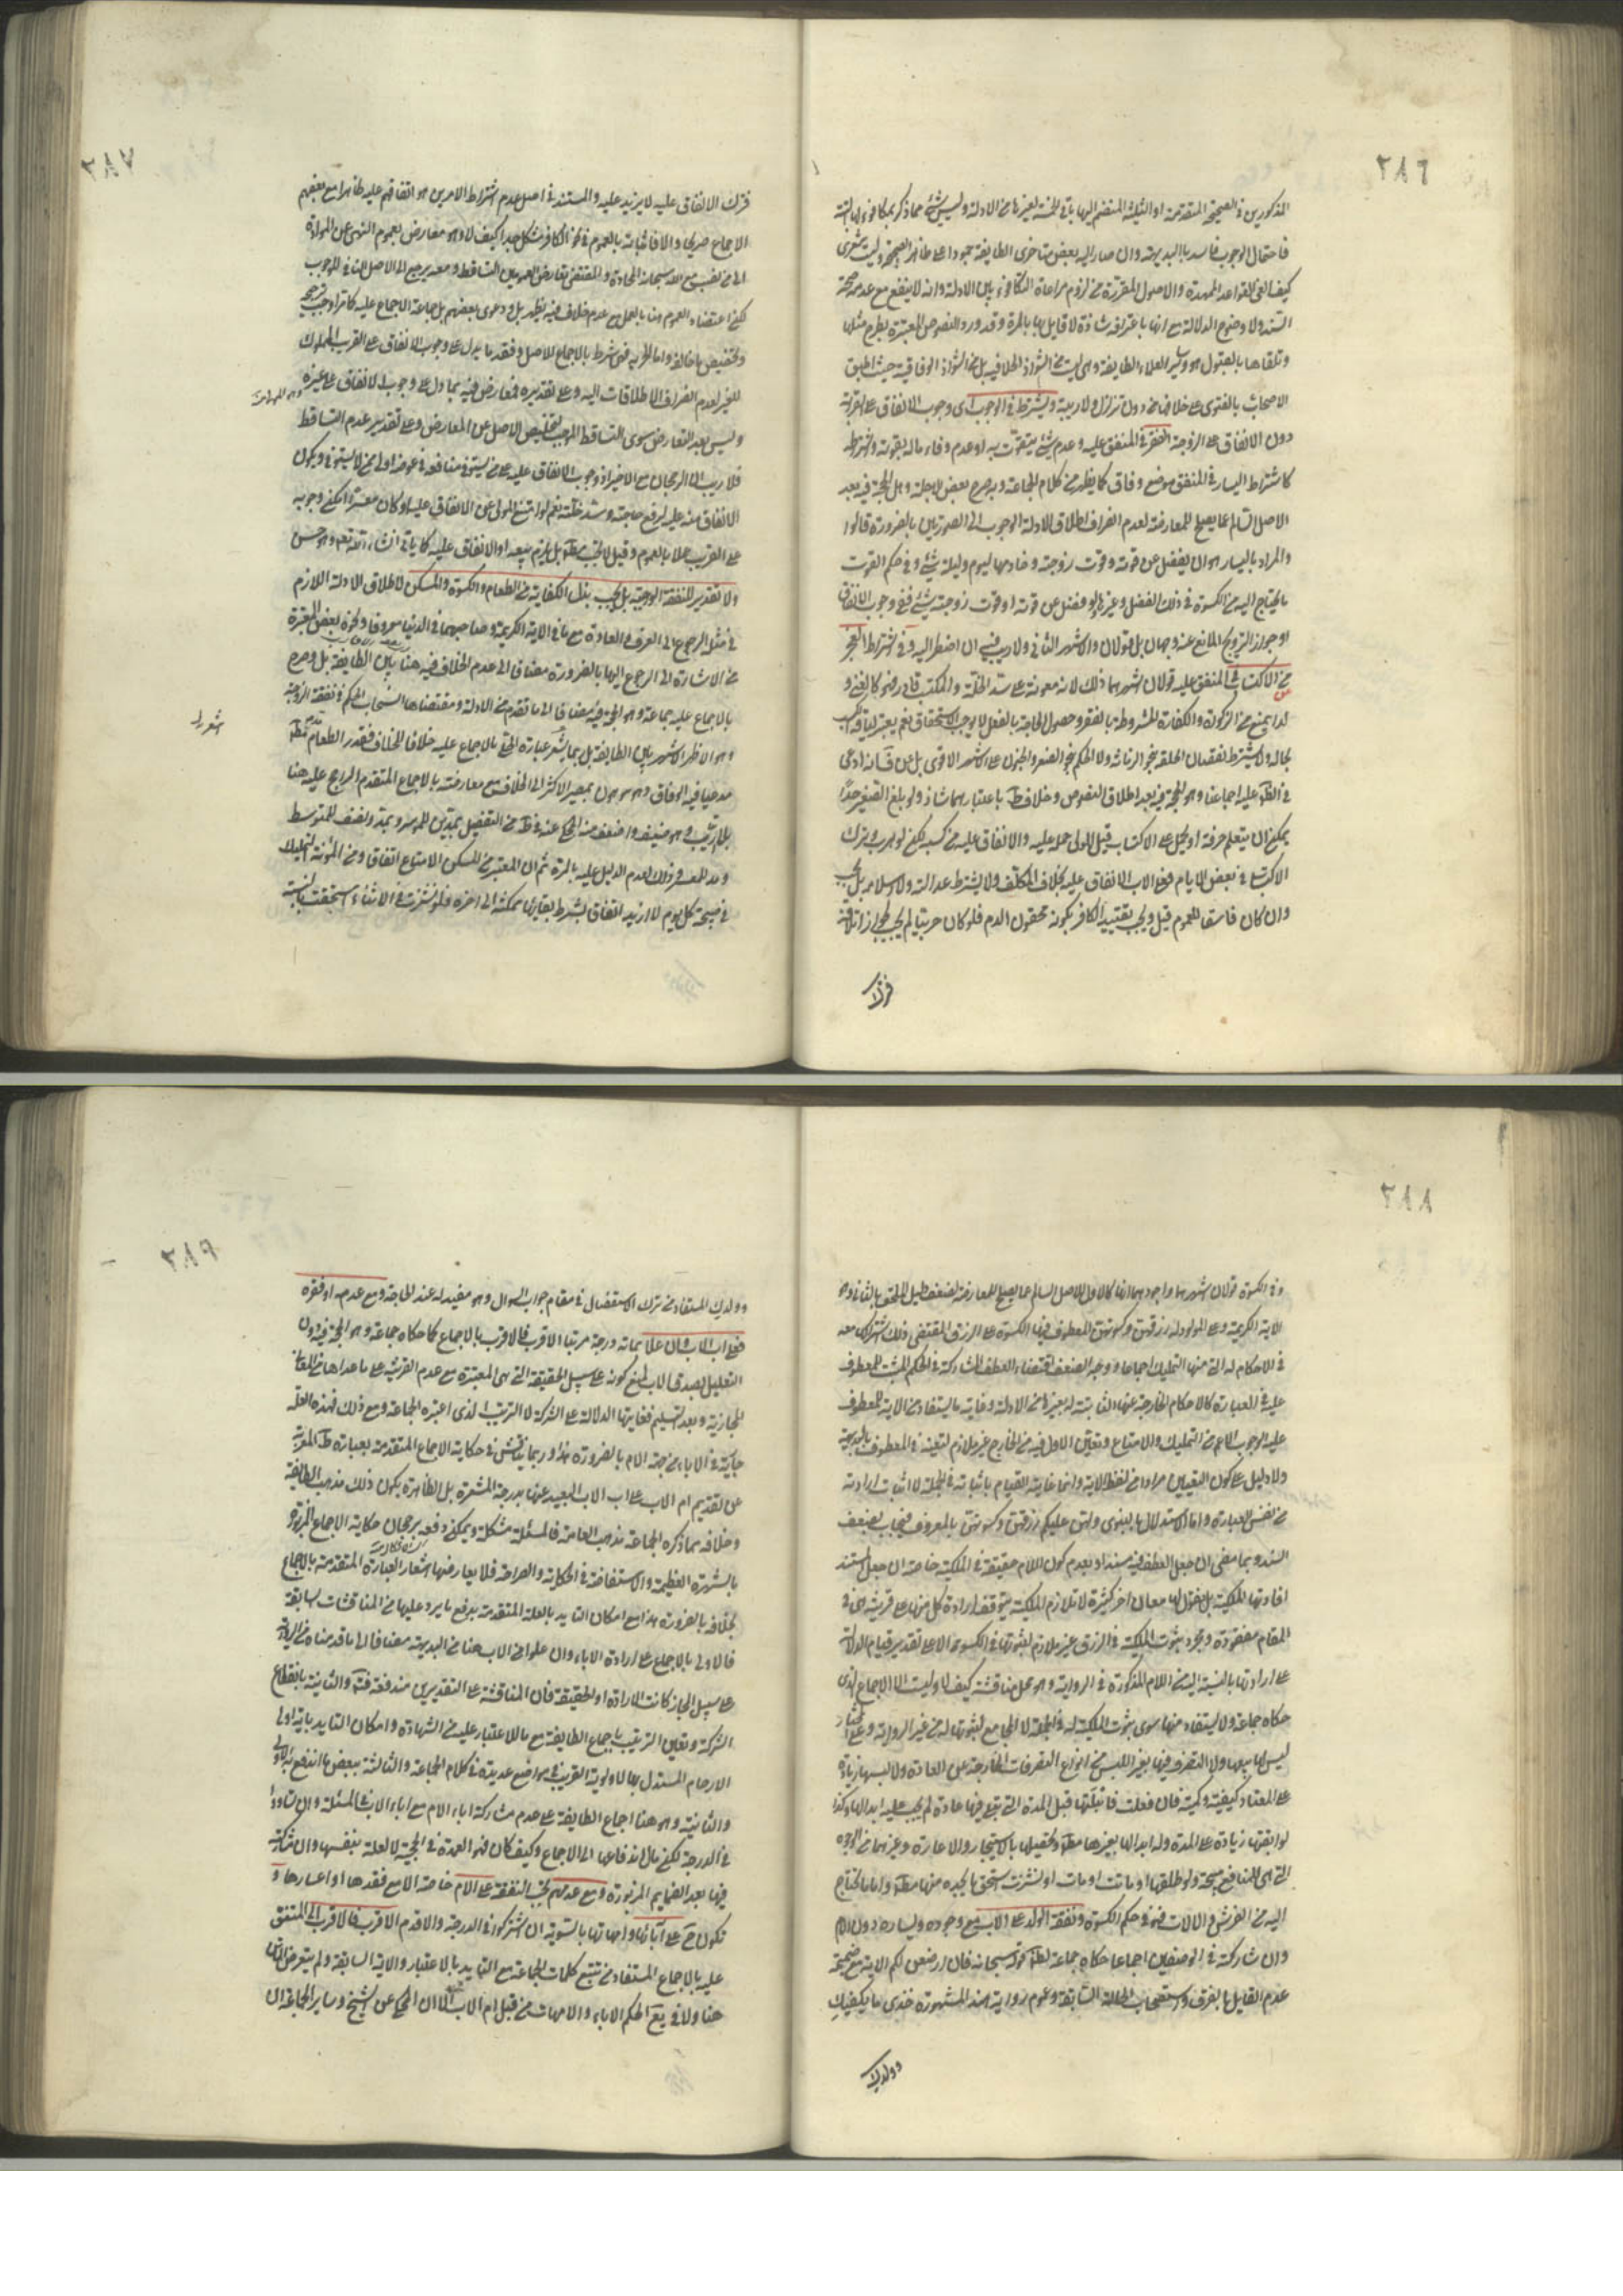 ٢٨٦
المذكورين في الصحيحة المتقدمة او الثلثة المنضم اليها باقي الخمسة لغيرها من الادلة وليس شئ مما ذكر بمكافؤ لها البتة
فاحتمال الوجوب فاسد بالبديهة وان صار اليه بعض متاخرى الطايفة جمودا على ظاهر الصحيحة وليت شعرى
كيف القى القواعد الممهدة والاصول المقررة من لزوم مراعاة التكافؤ بين الادلة وانه لا ينفع مع عدمه صحة
السند ولا وضوح الدلالة مع انها باعترافه شاذة لا قايل بها بالمرة وقد ورد النصوص المعتبرة بطرح مثلها
وتلقاها بالقبول هو وساير العلماء الطايفة وهى ليست من الشواذ الخلافية بل من الشواذ الوفاقية حيث اطبق
الاصحاب بالفتوى على خلافها من دون تزلزل ولا ريبة ويشترط في الوجوب اى وجوب الانفاق على القرابة
دون الانفاق على الزوجة الفقر في المنفق عليه وعدم شئ يتقوت به او عدم وفاء ماله بقوته واشتراطه
كاشتراط اليسار في المنفق موضع وفاق كما يظهر من كلام الجماعة وبه صرح بعض الاجلة وهل الحجة فيه بعد
الاصل السالم عما يصلح للمعارضة لعدم انصراف اطلاق الادلة الوجوب الى الصورتين بالضرورة قالوا
والمراد باليسار هو ان يفضل عن قوته وقوت زوجته وخادمها ليوم وليلة شئ وفي حكم القوت
ما يحتاج اليه من الكسوة في ذلك الفصل وغيرها ولو فضل عن قوته او قوت زوجته شئ ففي وجوب الانفاق
او جواز التزويج المانع عنه وجهان بل قولان والاشهر الثاني ولا ريب فيه ان اضطر اليه وفي اشتراط العجز
من الاكتساب في المنفق عليه قولان اشهرهما ذلك لانه معونة على سد الخلة والمكتسب قادر فهو كالغنى و
لذا يمنع من الزكوة والكفارة المشروطة بالفقر وحصول الحاجة بالفعل لا يوجب الاستحقاق نعم يعتبر لياقة الكسب
بحاله ولا يشترط نقصان الخلقة بنحو الزمانة ولا الحكم بنحو الصغر والجنون على الاشهر الاقوى بل عن ف انه ادعى
في الظاهر عليه اجماعنا وهو الحجة فيه بعد اطلاق النصوص وخلاف ط باعتبارهما شاذ ولو بلغ الصغير حدا
يمكن ان يتعلم حرفة او يحمل على الاكتساب قيل للولى حمله عليه والانفاق عليه من كسبه لكن لو هرب وترك
الاكتساب في بعض الايام فعلى الاب الانفاق عليه بخلاف المكلف ولا يشترط عدالته ولا اسلامه بل يجب
وان كان فاسقا للعموم قيل ويجب تقييد الكافر بكونه محقون الدم فلو كان حربيا لم يجب لجواز اتلافه
فترك
٢٨٧
فترك الانفاق عليه لا يزيد عليه والمستند في اصل عدم اشتراط الامرين هو اتفاقهم عليه ظاهرا مع بعضهم
الاجماع صريحا والا فاثباته بالعموم في نحو الكافر مشكل جدا كيف لا وهو معارض بعموم النهى عن الموادة
الى من نصب مع الله سبحانه المحادة والمقتضى تعارض العمومين التساقط ومعه يرجع الى الاصل النافي للوجوب
لكن اعتضاد العموم هنا بالعمل مع عدم خلاف فيه يظهر بل ودعوى بعضهم بل جماعة الاجماع عليه كما ترى اوجب ترجيحه
وتخصيص ما خالفه واما الحرية فهى شرط بالاجماع للاصل وفقد ما يدل على وجوب الانفاق على القريب المملوك
للغير لعدم انصراف الاطلاقات اليه وعلى تقديره فمعارض فيه بما دل على وجوب الانفاق على غيره وهو المولى
وليس بعد التعارض سوى التساقط الموجب لتخليص الاصل عن المعارض وعلى تقدير عدم التساقط
فلا ريب ان الرجحان مع الاخير اذ وجوب الانفاق عليه على من يستوفي منافعه في عوضه اولى من لا يستوفي ويكون
الانفاق منه عليه لرفع حاجته وسد خلته نعم لو امتنع المولى عن الانفاق عليه او كان معسرا امكن وجوبه
على القريب عملا بالعموم وقيل لا يجب مطلقا بل يلزم بيعه او الانفاق عليه كما ياتى انشاء الله تعالى وهو حسن
ولا تقدير للنفقة الواجبة بل يجب بذل الكفاية من الطعام والكسوة والمسكن لاطلاق الادلة اللازم
في مثله الرجوع الى العرف والعادة مع ما في الاية الكريمة وصاحبهما في الدنيا معروفا ونحوه بعض المعتبرة
من الاشارة الى الرجوع اليها بالضرورة مضافا الى عدم الخلاف فيه هنا بين الطايفة بل وصرح
بالاجماع عليه جماعة وهو الحجة فيه مضافا الى ما تقدم من الادلة ومقتضاها انسحاب الحكم في نفقة الزوجة
وهو الاظهر الاشهر بين الطايفة بل ربما يشعر عبارة الحلى بالاجماع عليه خلافا للخلاف فقدر الطعام بمد مطلقا
مدعيا فيه الوفاق وهو موهون بمصير الاكثر الى الخلاف مع معارضته بالاجماع المتقدم الراجح عليه هنا
بلا ريب وهو ضعيف واضعف منه المحكى عنه في ط من التفصيل بمدين للموسر وبمد ونصف للمتوسط
ومد للمعسر وذلك لعدم الدليل عليه بالمرة ثم ان المعتبر من المسكن الامتاع اتفاقا ومن المؤنة التمليك
في صبيحة كل يوم لا ازيد اتفاقا بشرط بقائها ممكنة الى اخره فلو نشزت في الاثناء استحقت بالنسبة
٢٨٨
وفي الكسوة قولان اشهرهما واجودهما انها كالاول للاصل السالم عما يصلح للمعارضة لضعف دليل الملحق بالثاني وهو
الاية الكريمة وعلى المولود له رزقهن وكسوتهن المعطوف فيها الكسوة على الرزق المقتضى ذلك اشتراكها معه
في الاحكام له التى منها التمليك اجماعا ووجه الضعف اقتضاء العطف المشاركة في الحكم المثبت للمعطوف
عليه في العبارة كالاحكام الخارجة عنها الثابتة له بغيرها من الادلة وغاية ما يستفاد من الاية للمعطوف
عليه الوجوب الاعم من التمليك والامتاع وتعيين الاول فيه من الخارج غير ملازم لتعيينه في المعطوف بالبديهة
ولا دليل على كون التعيين مرادا من لفظ الاية وانما غايته القيام باثباته في الجملة لا اثبات ارادته
من نفس العبارة واما الاستدلال بالنبوى ولهن عليكم رزقهن وكسوتهن بالمعروف فيجاب بضعف
السند وبما مضى ان جعل العطف فيه مستندا وبعدم كون اللام حقيقة في الملكية خاصة ان جعل المستند
افادتها الملكية بل نقول لها معان اخر كثيرة لا تلازم الملكية يتوقف ارادة كل منها على قرينة هى في
المقام مفقودة ومجرد ثبوت الملكية في الرزق غير ملازم لثبوتها في الكسوة الا على تقدير قيام الدلالة
على ارادتها بالنسبة اليه من اللام المذكورة في الرواية وهو محل مناقشة كيف لا وليست الا الاجماع الذى
حكاه جماعة ولا يستفاد منها سوى ثبوت الملكية له في الجملة لا المجامع لثبوتها له من غير الرواية وعلى المختار
ليس لها بيعها ولا التصرف فيها بغير اللبس من انواع التصرفات الخارجة عن العادة ولا لبسها زيادة
على المعتاد كيفية وكمية فان فعلت فابلتها قبل المدة التى تبقى فيها عادة لم يجب عليه ابدالها وكذا
لو ابقتها زيادة على المدة وله ابدالها بغيرها مطلقا وتحصيلها بالاستيجار والاعارة وغيرهما من الوجوه
التى هى للمنافع مبيحة ولو طلقها او ماتت او مات او نشزت استحق ما يجده منها مطلقا واما ما يحتاج
اليه من الفرش والالات فهو في حكم الكسوة ونفقة الولد على الاب مع وجوده ويساره دون الام
وان شاركته في الوصفين اجماعا حكاه جماعة لظاهر قوله سبحانه فان ارضعن لكم الاية مع ضميمة
عدم القايل بالفرق واستصحاب الحالة السابقة وعموم رواية هند المشهورة خذى ما يكفيك
وولدك
٢٨٩
وولدك المستفاد من ترك الاستفصال في مقام جواب السوال وهو مفيد له عند الحاجة ومع عدمه او فقره
فعلى اب الاب وان علا بمائة درجة مرتبا الاقرب فالاقرب بالاجماع كما حكاه جماعة وهو الحجة فيه دون
التعليل بصدق الاب لمنع كونه على سبيل الحقيقة التى هى المعتبرة مع عدم القرينة على ما عداها من المعانى
المجازية وبعد تسليم فغايتها الدلالة على الشركة لا الترتيب الذى اعتبره الجماعة ومع ذلك فهذه العلة
جارية في الاباء من جهة الام بالضرورة هذا وربما يناقش في حكاية الاجماع المتقدمة بعبارة ط المعربة
عن تقديم ام الاب على اب الاب البعيد عنها بدرجة المشعرة بل الظاهرة بكون ذلك مذهب الطايفة
وخلافه مما ذكره الجماعة مذهب العامة فالمسئلة مشكلة ويمكن دفعه برجحان حكاية الاجماع المزبور
بالشهرة العظيمة والاستفاضة في الحكاية والصراحة فلا يعارضها اشعار العبارة المتقدمة بالاجماع
بخلافه بالضرورة هذا مع امكان التاييد بالعلة المتقدمة بدفع ما يرد عليها من المناقشات السابقة
فالاولى بالاجماع على ارادة الاباء وان علوا من الاب هنا من البديهة مضافا الى ما قدمناه من الزيادة
على سبيل المجاز كانت الارادة او الحقيقة فان المناقشة على التقديرين مندفعة فتم والثانية بانقطاع
الشركة وتعين الترتيب باجماع الطايفة مع ما لا اعتبار عليه من الشهادة وامكان التاييد باية اولى
الارحام المستدل بها لاولوية القريب في مواضع عديدة في كلام الجماعة والثالثة ببعض ما اندفع به الاولى
والثانية وهو هنا اجماع الطايفة على عدم مشاركة اباء الام مع اباء الاب في المسئلة وان تساووا
في الدرجة لكن مال اندفاعها الى الاجماع وكيف كان فهو العمدة في الحجية لا لعلة بنفسها وان شاركته
فيها بعد الضمايم المزبورة ومع عدمهم تجب النفقة على الام خاصة الا مع فقدها او اعسارها و
تكون ح على آبائها وامهاتها بالسوية ان اشتركوا في الدرجة والا قدم الاقرب فالاقرب الى المنفق
عليه بالاجماع المستفاد من تتبع كلمات الجماعة مع التاييد بالاعتبار والاية السابقة ولم يتعرض الماتن
هنا ولا في يع الحكم الاباء والامهات من قبل ام الاب الا ان المحكى عن الشيخ وساير الجماعة ان